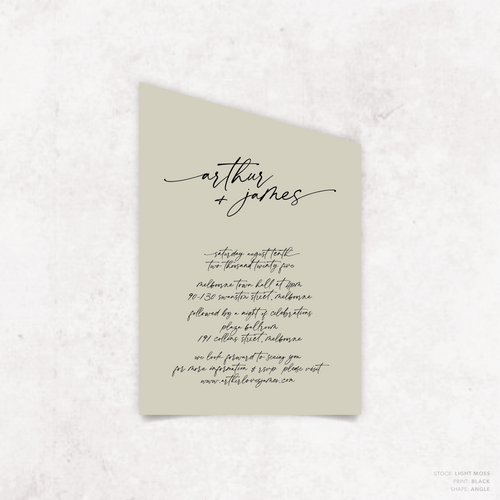 arthur
+ james
saturday august tenth
two thousand twenty five
melbourne town hall at 2pm
90-130 swanston street, melbourne
followed by a night of celebrations
plaza ballroom
191 collins street, melbourne
we look forward to seeing you
for more information & rsvp please visit
www.arthurlovesjames.com
STOCK: LIGHT MOSS
PRINT: BLACK
SHAPE: ANGLE